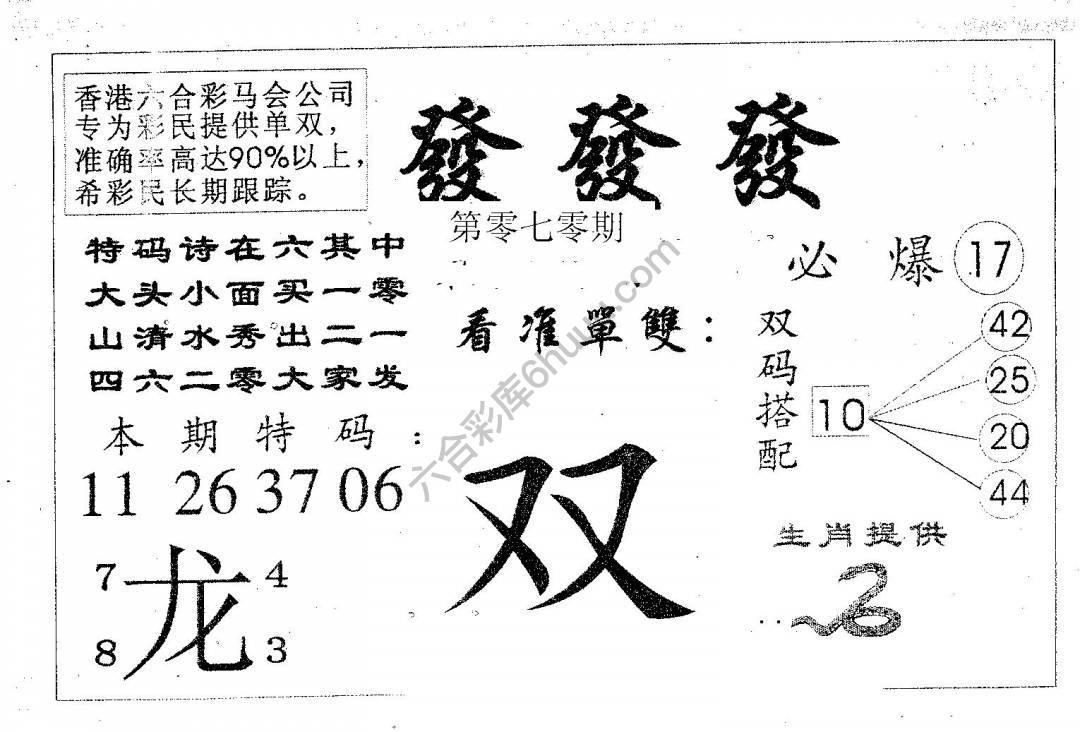 香港六合彩马会公司
专为彩民提供单双，
准确率高达90%以上，
希彩民长期跟踪。
發 發 發
第零七零期
特码诗在六其中
大头小面买一零
山清水秀出二一
四六二零大家发
必爆 17
看准單雙：
双
双码搭配
10
42
25
20
44
本期特码：
11 26 37 06
龙
7 4
8 3
生肖提供
六合彩库6huuu.com